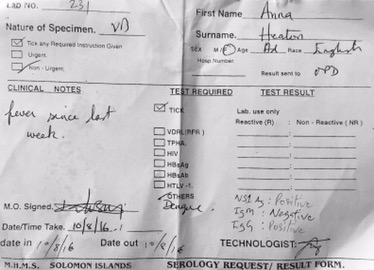 LAB NO. 231
First Name Anna
Nature of Specimen.
Surname. Heaton
Tick any Required Instruction Given
SEX M/F Age Ad Race English
Urgent.
Hosp Number
Non - Urgent.
Result sent to OPD
CLINICAL NOTES
TEST REQUIRED
TEST RESULT
fever since last
week.
TICK
Lab. use only
Reactive (R) : Non - Reactive ( NR )
VDRL(RPR )
TPHA.
HIV
HBsAg
HBsAb
HTLV -1.
OTHERS
Dengue.
NS1 Ag : Positive
IgM : Negative
IgG : Positive
M.O. Signed.
Date/Time Take. 10/8/16
date in 10/8/16 Date out 10/8/16
TECHNOLOGIST:
M.H.M.S. SOLOMON ISLANDS SEROLOGY REQUEST/ RESULT FORM.